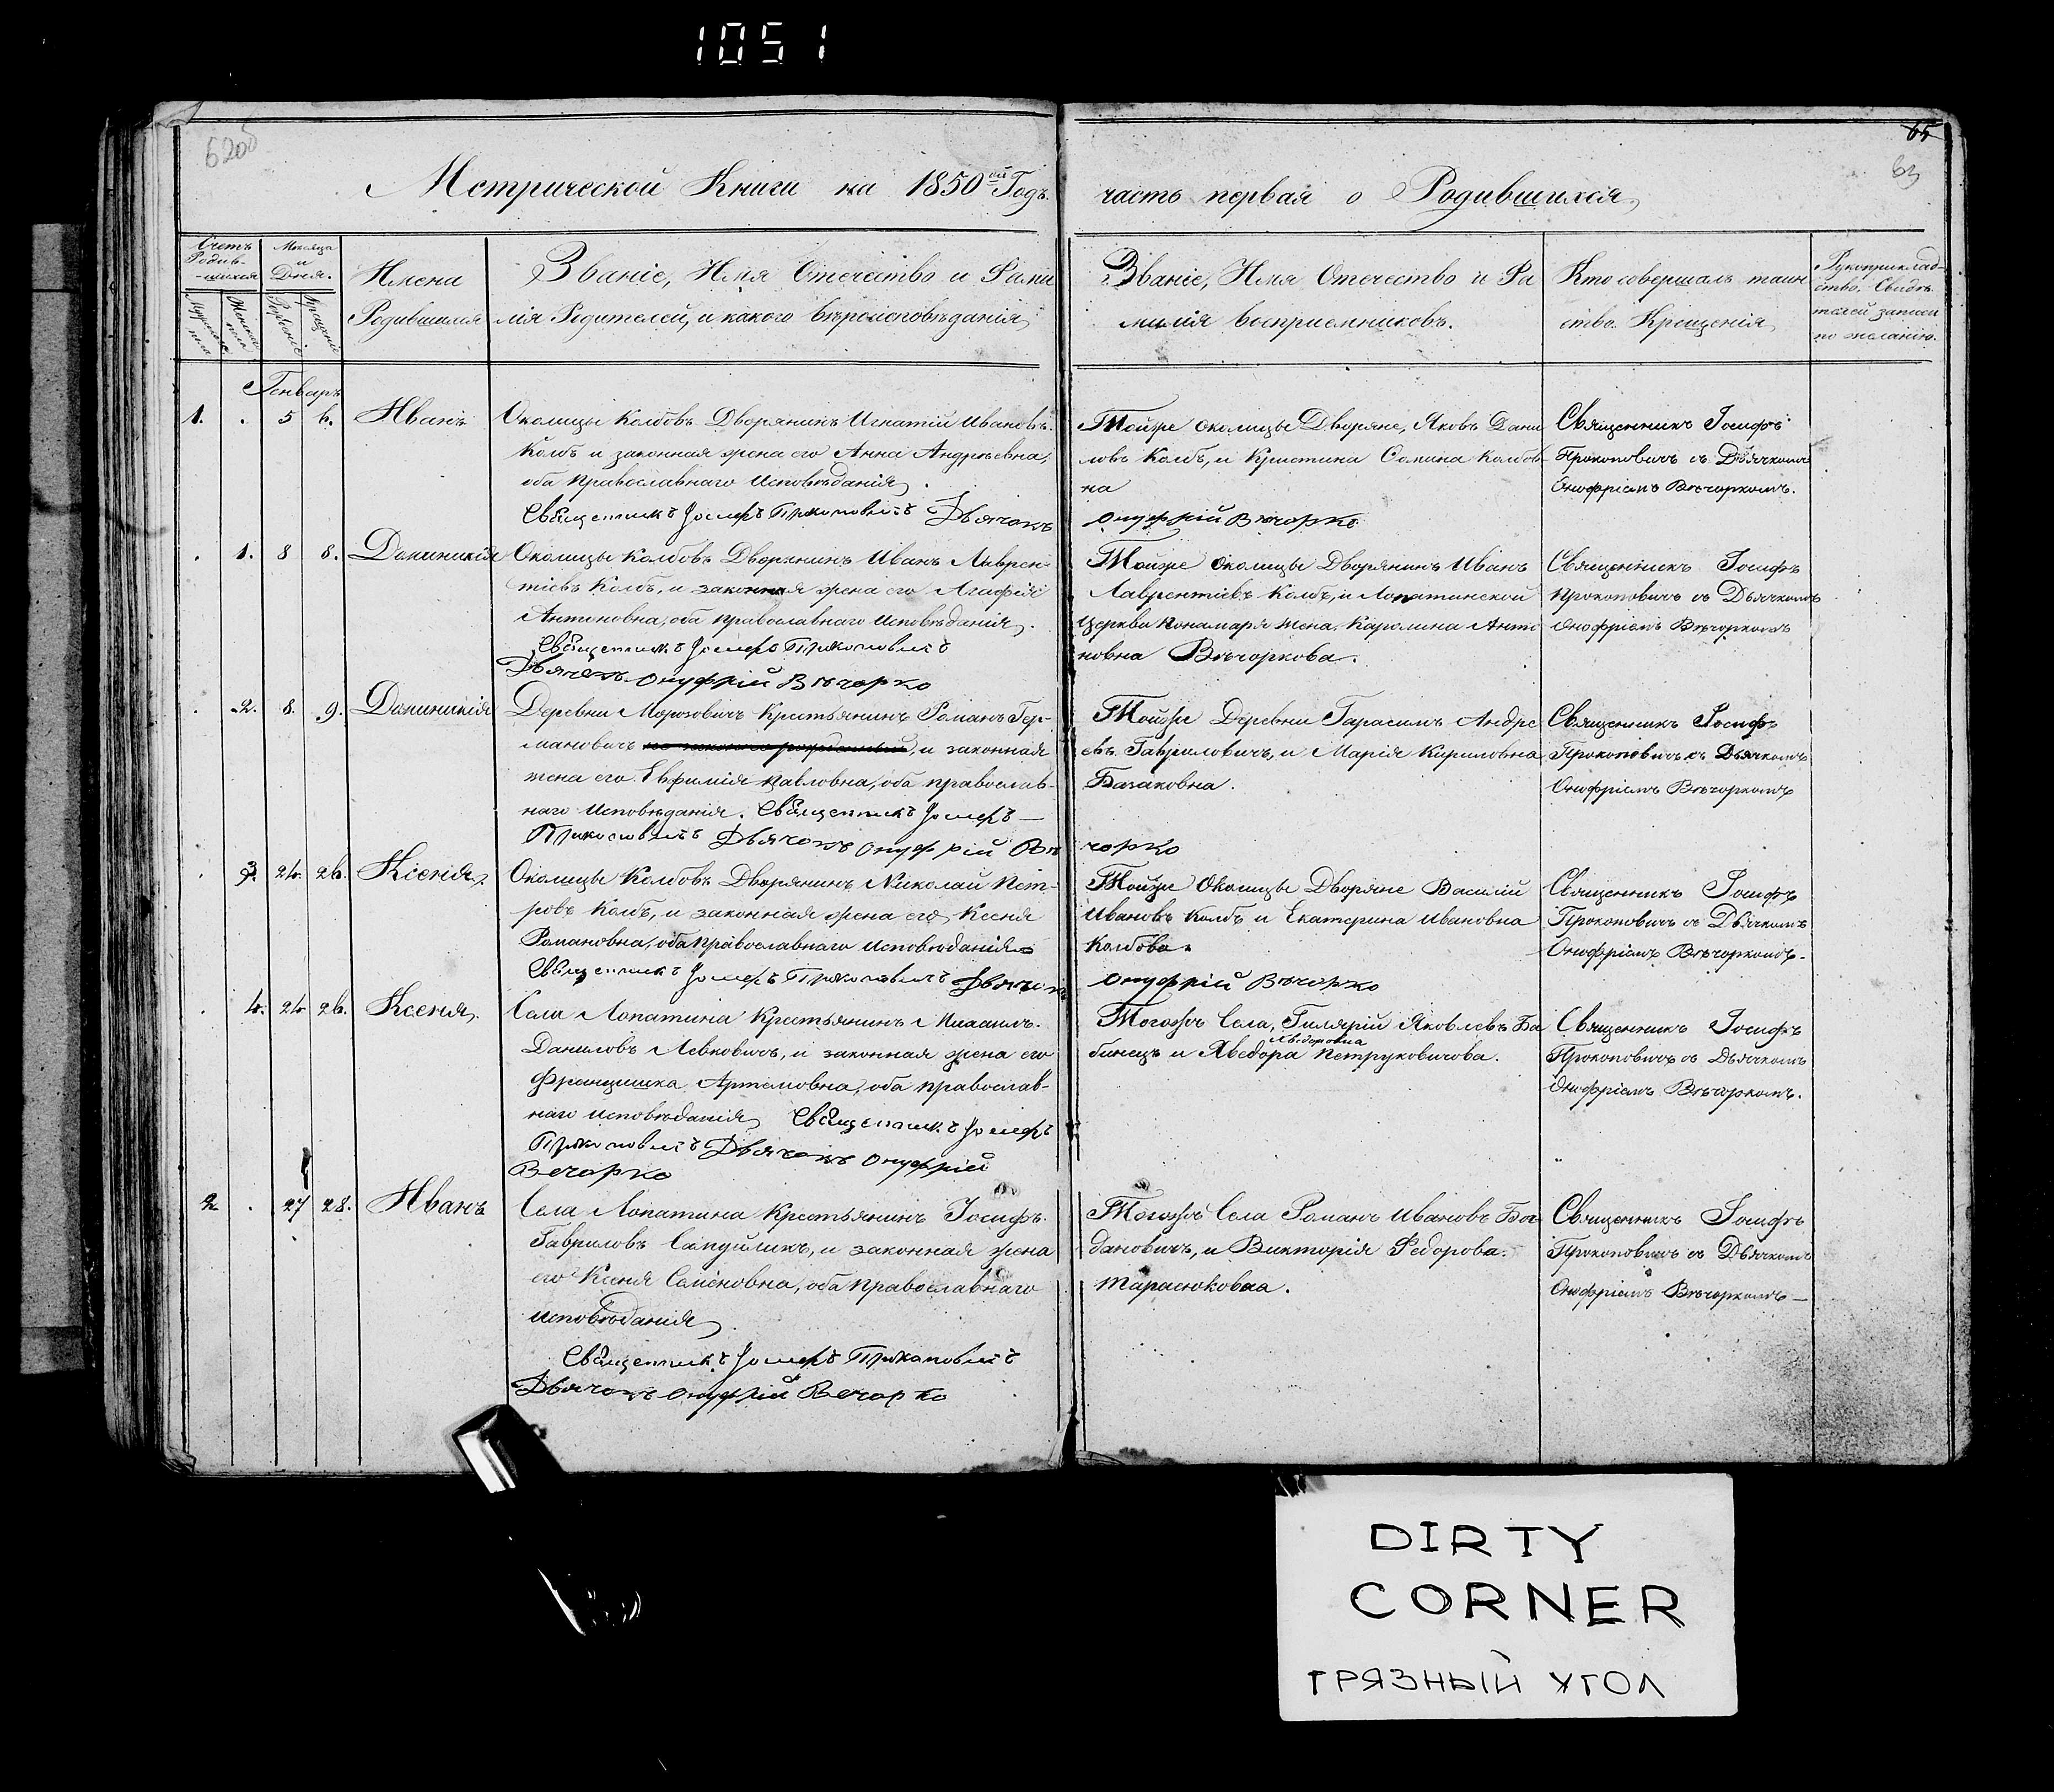 1051
62об
65
63
Метрической Книги на 1850ой Годъ.
часть первая о Родившихся,
Счетъ
Родив-
-шихся
Мужеска
пола
Женска
пола
Месяца
и
Дней.
Рожденіе
Крещеніе
Имена
Родившихся
Званіе, Имя Отечество и Фами
лія Родителей, и какого вѣроисповѣданія,
Званіе, Имя Отечество и Фа
милія воспріемниковъ.
Кто совершалъ таин
ство Крещенія,
Рукоприклад-
ство, Свидѣ
телей записи
по желанію.
Генварь
1. . 5 6. Иванъ
Околицы Колбовъ Дворянинъ Игнатій Ивановъ
Колбъ и законная жена его Анна Андреевна,
оба Православнаго Исповѣданія,
Священникъ Іосифъ Прокоповичъ Дьячокъ
Тойже Околицы Дворяне, Яковъ Дани
ловъ Колбъ, и Кристина Семина Колбов
на
Онуфрій Вѣчорко
Священникъ Іосифъ
Прокоповичъ съ Дьячкомъ
Онофріемъ Вѣчоркомъ.
. 1. 8 8. Доминикія
Околицы Колбовъ Дворянинъ Иванъ Лаврен-
тіевъ Колбъ, и законная жена его Агафія
Антоновна, оба православнаго исповѣданія.
Священникъ Іосифъ Прокоповичъ
Дьячокъ Онуфрій Вѣчорко
Тойже Околицы Дворянинъ Иванъ
Лаврентіевъ Колбъ, и Лопатинской
Церкви Понамаря жена Каролина Анто
новна Вѣчоркова.
Священникъ Іосифъ
Прокоповичъ съ Дьячкомъ
Онофріемъ Вѣчоркомъ
. 2. 8. 9. Доминикія
Деревни Морозовичъ Крестьянинъ Романъ Гер-
мановичъ , и законная
жена его Евфимія Павловна, оба православ-
наго Исповѣданія. Священникъ Іосифъ
Прокоповичъ Дьячокъ Онуфрій Вѣ
Тойже Деревни Гарасимъ Андре
евъ Гавриловичъ, и Марія Кириловна
Базаковна.
чорко
Священникъ Іосифъ
Прокоповичъ съ Дьячкомъ
Онофріемъ Вѣчоркомъ
. 3. 24. 26. Ксенія.
Околицы Колбовъ Дворянинъ Николай Пет-
ровъ Колбъ, и законная жена его Ксеня
Романовна, оба православнаго исповѣданія
Священникъ Іосифъ Прокоповичъ Дьячокъ
Тойже Околицы Дворяне Василій
Ивановъ Колбъ и Екатерина Ивановна
Колбова.
Онуфрій Вѣчорко
Священникъ Іосифъ
Прокоповичъ съ Дьячкомъ
Онофріемъ Вѣчоркомъ.
. 4. 24 26. Ксенія.
Села Лопатина Крестьянинъ Михаилъ
Даниловъ Левковичъ, и законная жена его
Францишка Артемовна, оба православ-
наго исповѣданія, Священникъ Іосифъ
Прокоповичъ Дьячокъ Онуфрій
Вечорко
Тогожъ Села, Гилярій Яковлевъ Ба
бинецъ и Хведора Петруковичова.
Священникъ Іосифъ
Прокоповичъ съ Дьячкомъ
Онофріемъ Вѣчоркомъ.
2 . 27 28. Иванъ
Села Лопатина Крестьянинъ Іосифъ
Гавриловъ Сапуйликъ, и законная жена
его Ксеня Семеновна, оба православнаго
исповѣданія,
Священникъ Іосифъ Прокоповичъ
Дьячокъ Онуфрій Вечорко
Тогожъ Села Романъ Ивановъ Бог
дановичъ, и Викторія Федорова
Тарасюковна.
Священникъ Іосифъ
Прокоповичъ съ Дьячкомъ
Онофріемъ Вѣчоркомъ
DIRTY
CORNER
ГРЯЗНЫЙ УГОЛ